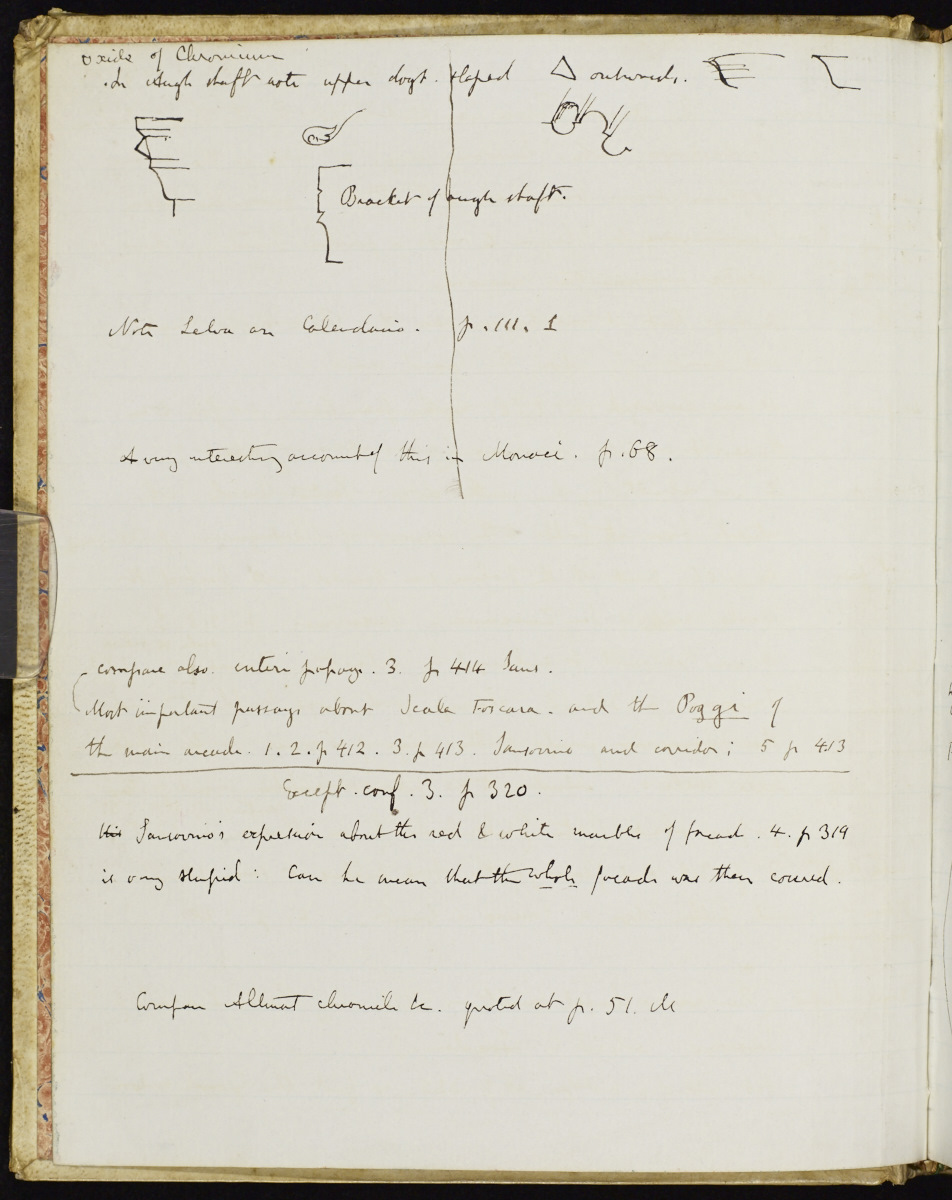 oxide of Chromium
In Angle shaft note upper dogt. sloped outwards.
Bracket of angle shaft.
Note Selva on Calendario. p. 111. 1
A very interesting account of this in Monaci. p. 68.
compare also. 3. p 414 Sans.
Most important passage about Scala Foscara. and the Poggi of
the main arcade. 1. 2. p 412. 3. p 413. Sansovino and corridor; 5 p 413
Except. conf. 3. p 320.
this Sansovino's expression about the red & white marbles of facade. 4. p 319
is very stupid: Can he mean that the whole facade was then covered.
Compare chronicle &c. quoted at p. 51. M